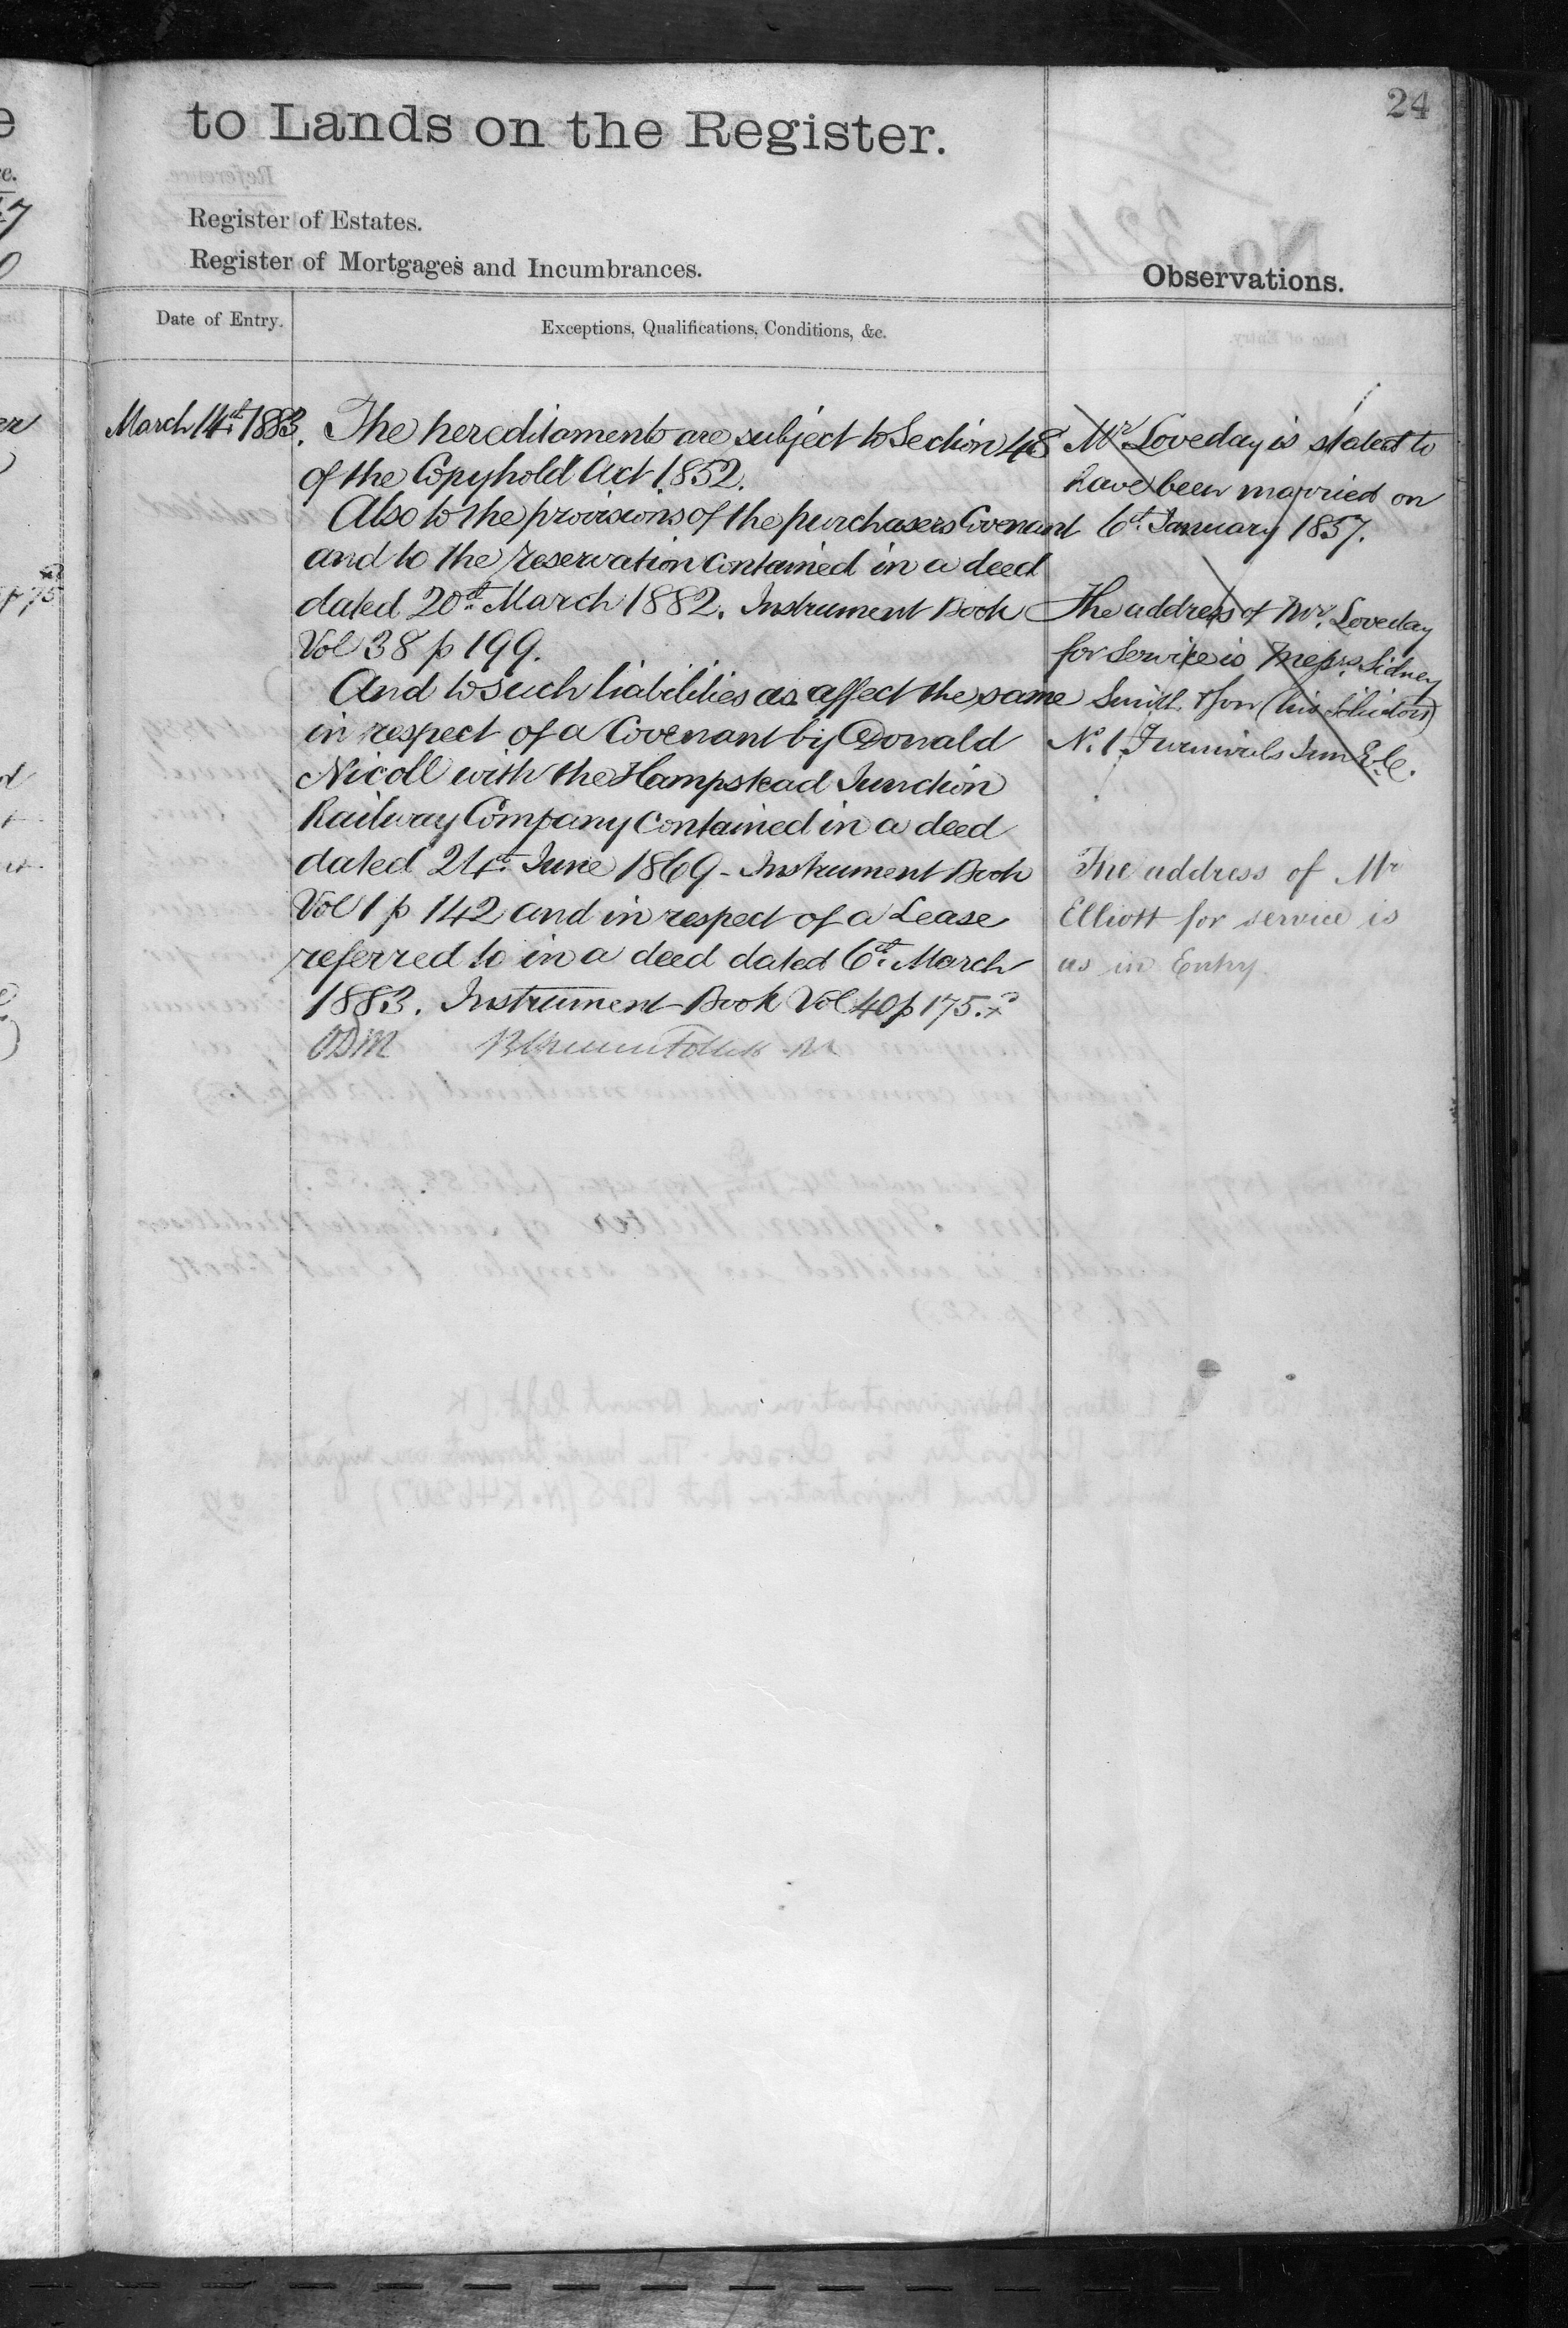 24
to Lands on the Register.
Register of Estates.
Register of Mortgages and Incumbrances.
Observations.
Date of Entry.
Exceptions, Qualifications, Conditions, &c.
March 14th 1883.
The hereditaments are subject to Section 48
of the Copyhold Act 1852.
Also to the provisions of the purchasers Covenant
and to the reservation contained in a deed
dated 20th March 1882. Instrument Book
Vol 38 p 199.
And to such liabilities as affect the same
in respect of a Covenant by Donald
Nicoll with the Hampstead Junction
Railway Company contained in a deed
dated 24th June 1869 - Instrument Book
Vol 1 p 142 and in respect of a Lease
referred to in a deed dated 6th March
1883. Instrument Book Vol 40 p 175.
Mr Loveday is stated to
have been married on
6th January 1857.
The address of Mr. Loveday
for Service is Messrs Sidney
Smith & Son (his Solicitors)
No. 1 Furnivals Inn E.C.
The address of Mr
Elliott for service is
as in Entry.